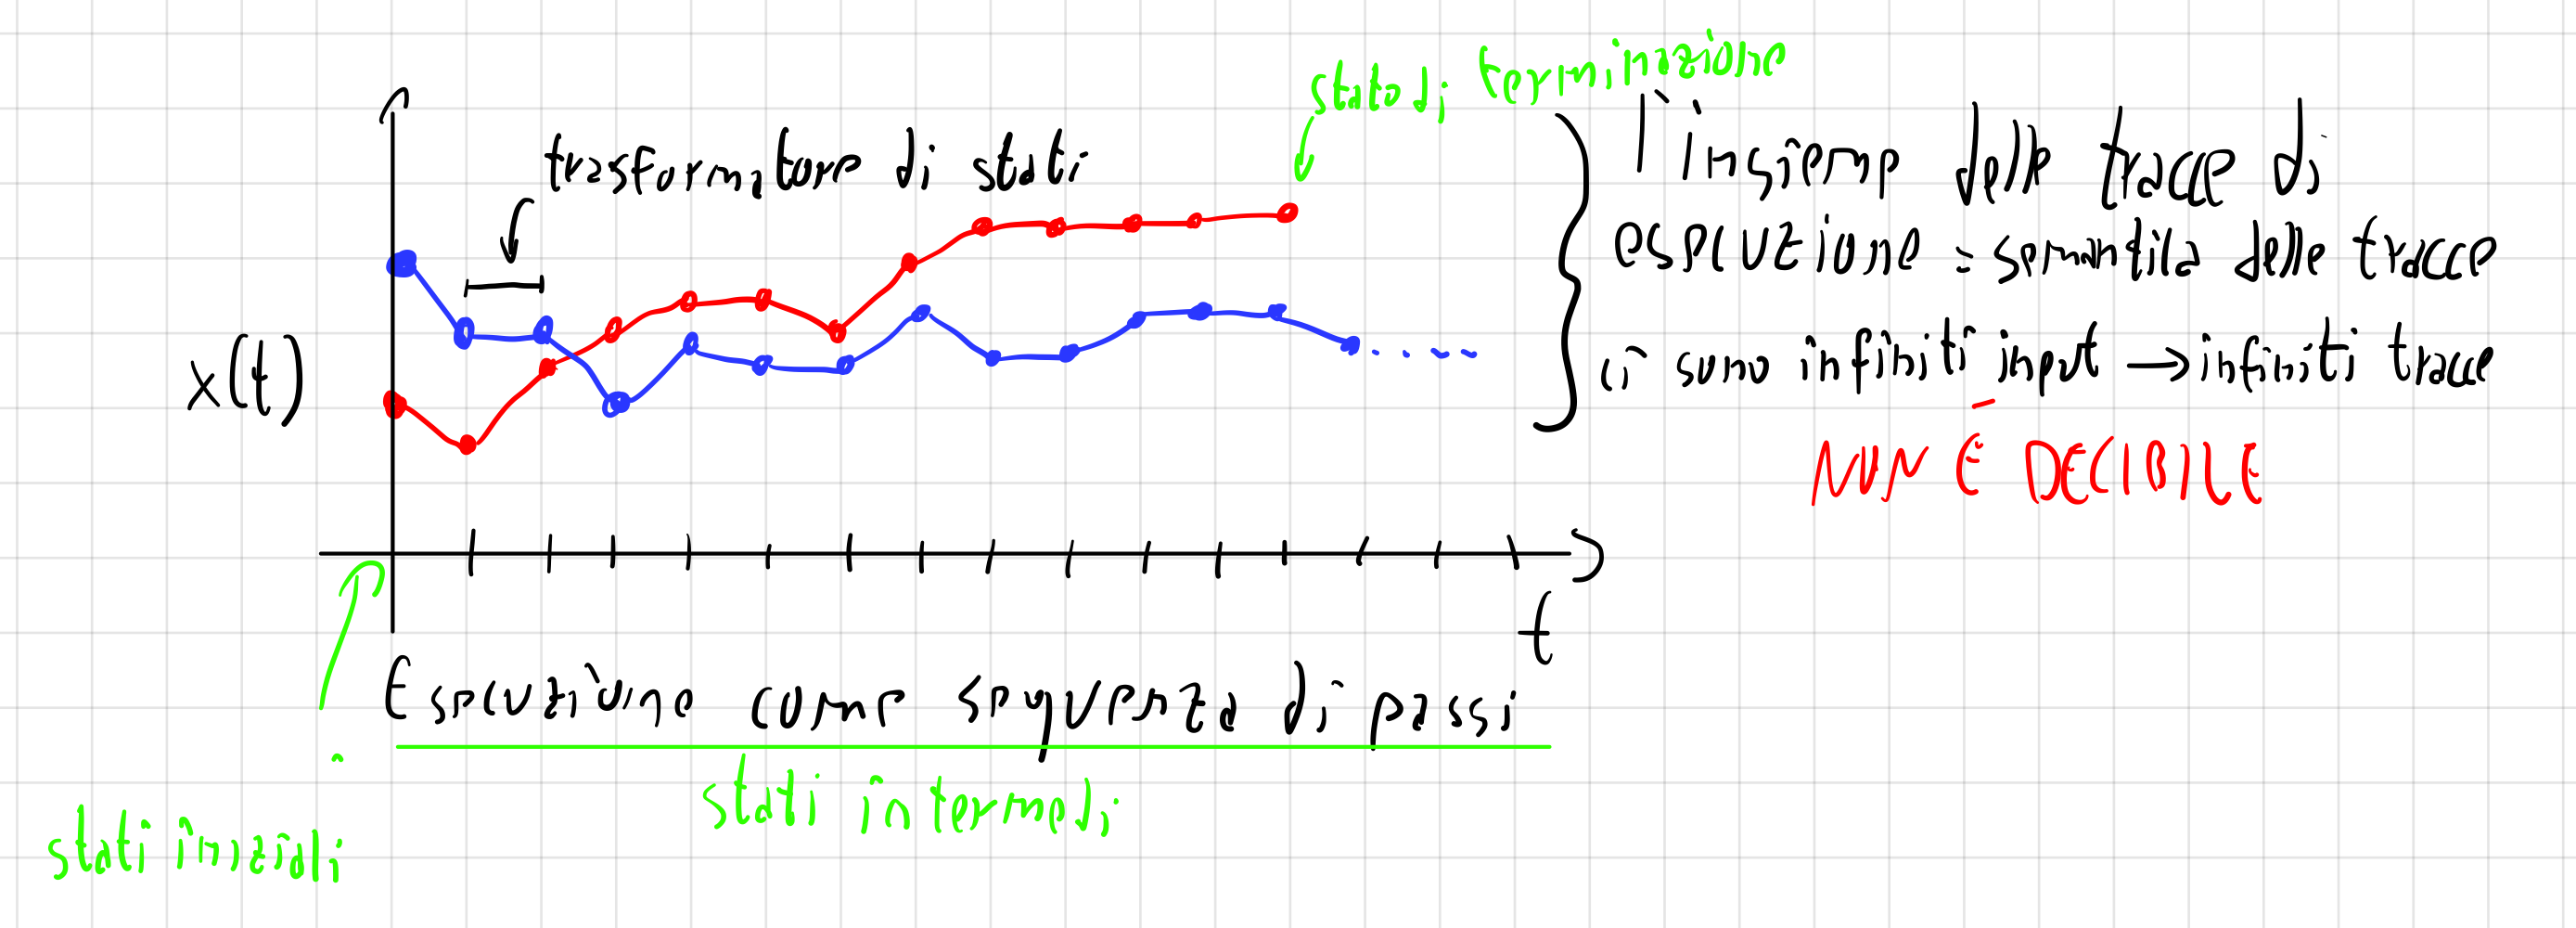 stato di terminazione
trasformatore di stati
l'insieme delle tracce di
esecuzione = semantica delle tracce
ci sono infiniti input → infiniti tracce
NON È DECIBILE
x(t)
t
Esecuzione come sequenza di passi
stati intermedi
stati iniziali